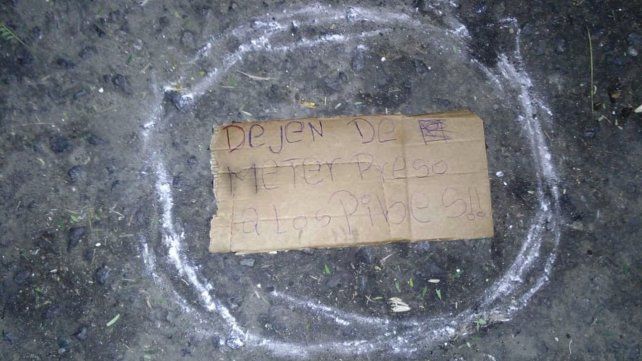 DeJeN De
MeTer Preso
a Los PibeS!!